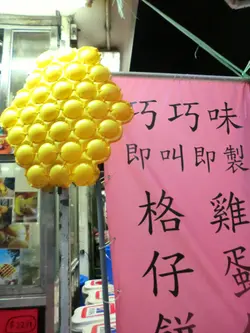 巧巧味
即叫即製
雞蛋
格仔餅